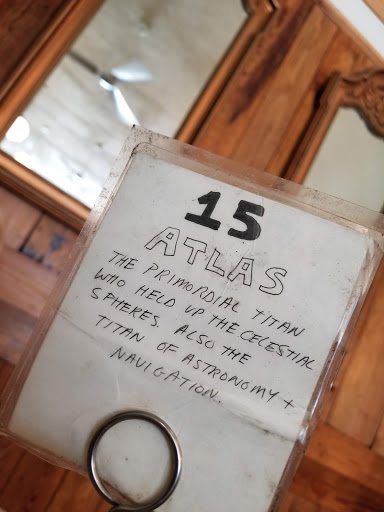 15
ATLAS
THE PRIMORDIAL TITAN
WHO HELD UP THE CELESTIAL
SPHERES. ALSO THE
TITAN OF ASTRONOMY +
NAVIGATION.